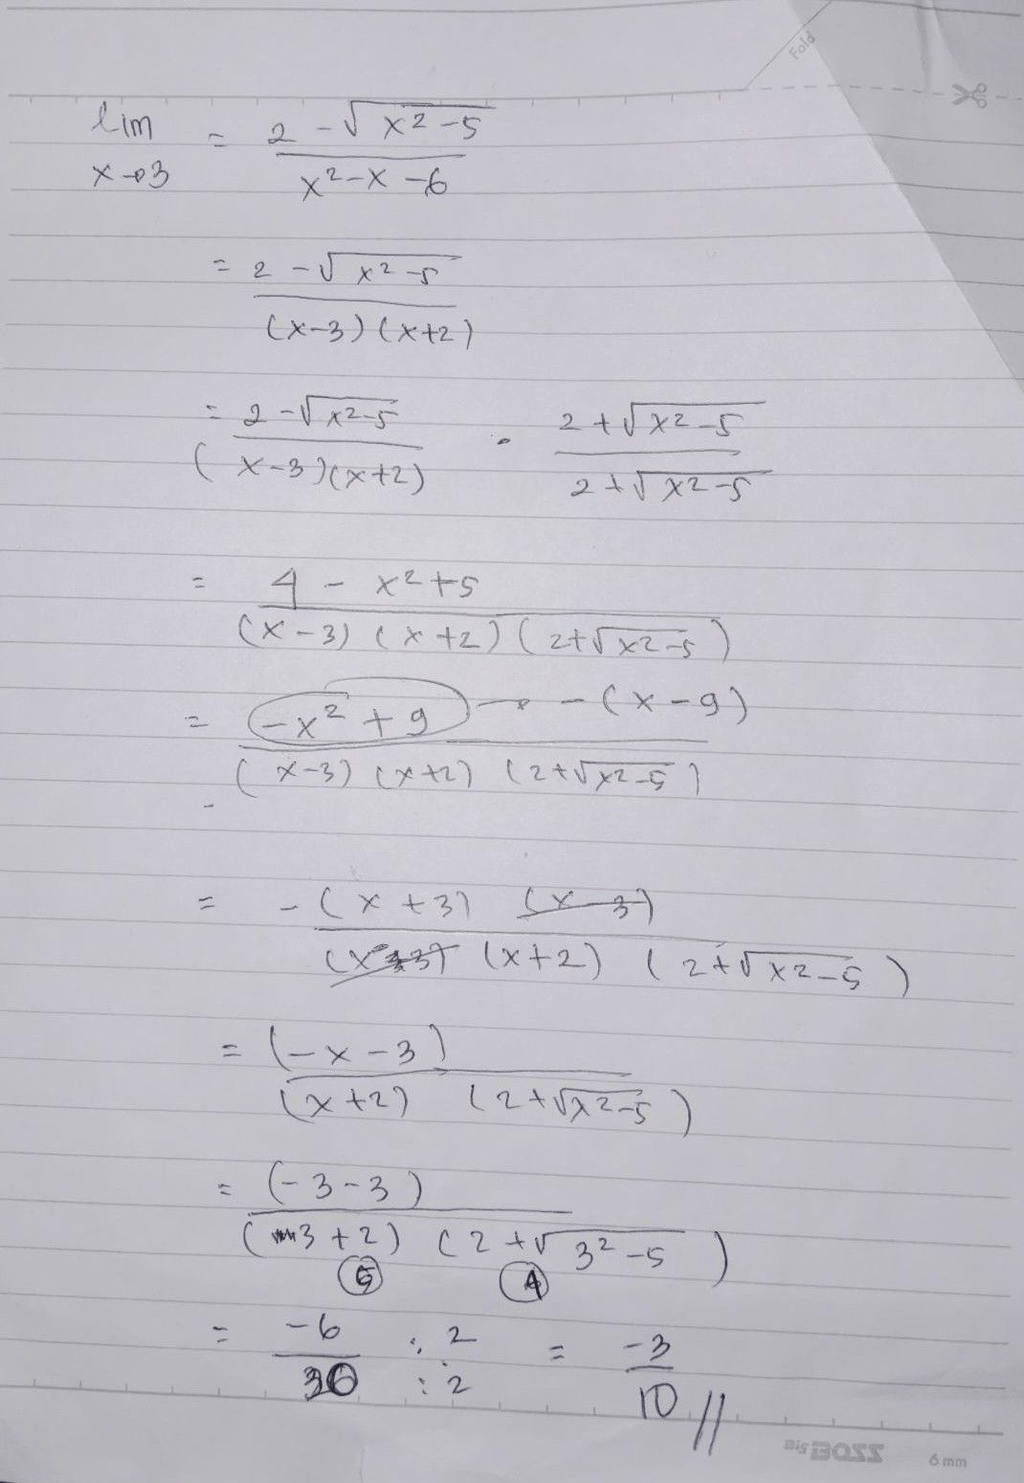 Fold
lim x→3 = (2 - √(x² - 5)) / (x² - x - 6)
= (2 - √(x² - 5)) / ((x-3)(x+2))
= (2 - √(x² - 5)) / ((x-3)(x+2)) · (2 + √(x² - 5)) / (2 + √(x² - 5))
= (4 - x² + 5) / ((x-3)(x+2)(2+√(x² - 5)))
= (-x² + 9) / ((x-3)(x+2)(2+√(x² - 5))) → -(x-9)
= -(x+3)(x-3) / ((x-3)(x+2)(2+√(x² - 5)))
= (-x-3) / ((x+2)(2+√(x² - 5)))
= (-3-3) / ((3+2)(2+√(3² - 5)))
5 4
= -6/30 : 2/: 2 = -3/10 //
6 mm